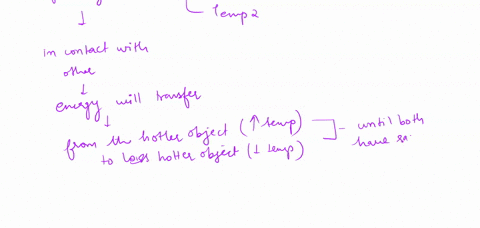 Temp 2
in contact with
other
↓
energy will transfer
↓
from the hotter object (↑ temp) ] - until both
to less hotter object (↓ temp) have